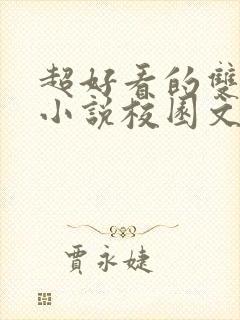 超好看的雙
小說校園文
賈永婕